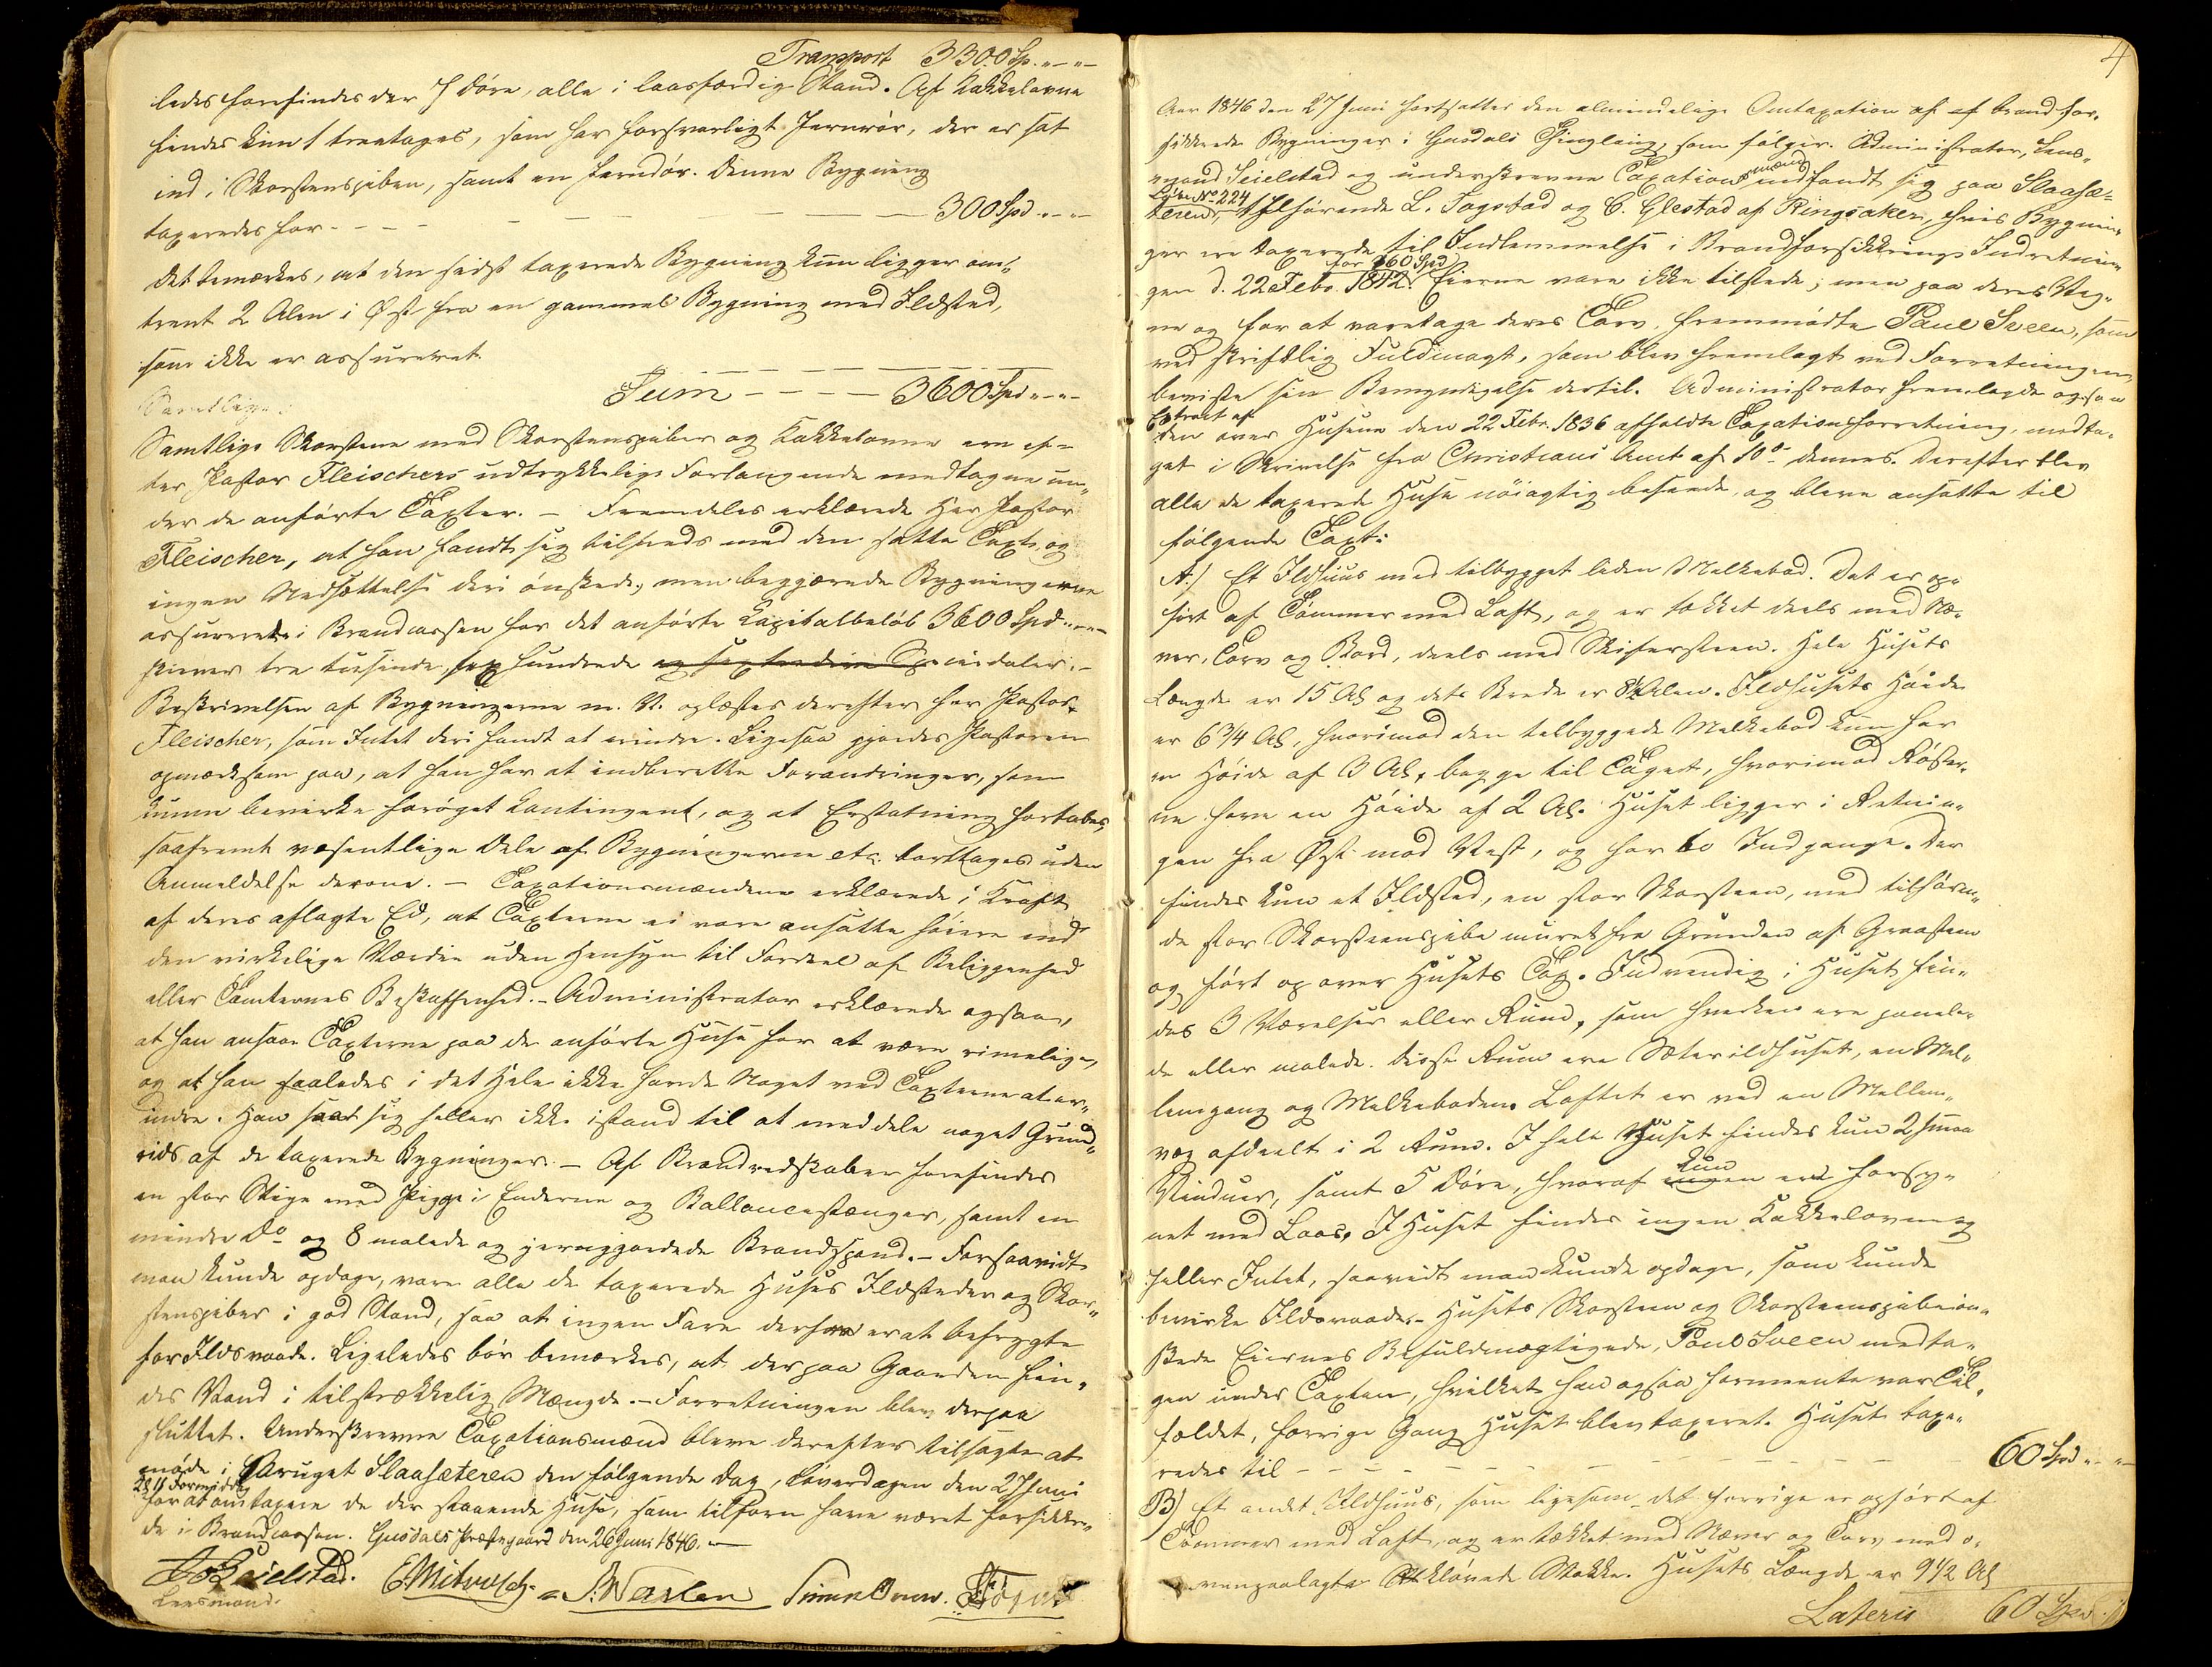 Transport 3300 Sp. „ – „ –
ledes forefindes der 7 Døre, alle i laasfærdig Stand. Af Kakkelovne
findes kun 1 treetages, som har forsvarligt Jernrør, der er sat
ind i Skorstenspiben, samt en Jerndør. Denne Bygning
taxeredes for - - - - 300 Spd „ - „ -
Det bemærkes, at den sidst taxerede Bygning kun ligger om„
trent 2 Alen i Øst fra en gammel Bygning med Ildsted,
som ikke er assureret.
Sum - - - - 3600 Spd „ - „ -
Samtlige
Samtlige Skorstene med Skorstenspiber og Kakkelovne ere ef=
ter Pastor Fleischers udtrykkelige Forlangende medtagne un„
der de anførte Taxter. – Fremdeles erklærede Her Pastor
Fleischer, at han fandt sig tilfreds med den satte Taxt, og
ingen Nedsættelse deri ønskede, men begjærede Bygningerne
assurerede i Brandcassen for det anførte Kapitalbeløb 3600 Spd „ - „ -
skriver tre tusinde, sex hundrede og sextredive Speciedaler. –
Beskrivelsen af Bygningerne m. V. oplæstes derefter for Pastor
Fleischer, som Intet deri fandt at erindre. Ligesaa gjordes Pastoren
opmærksom paa, at han har at indberette Forandringer, som
kunne bevirke forøget Kontingent, og at Erstatning fortabes,
saafremt væsentlige Dele af Bygningerne etc. borttages uden
Anmeldelse derom. – Taxationsmændene erklærede i Kraft
af deres aflagte Ed, at Taxterne ei vare ansatte høiere end
den virkelige Værdie uden Hensyn til Fordeel af Beliggenhed
eller Tomternes Beskaffenhed. – Administrator erklærede ogsaa,
at han ansaae Taxterne paa de anførte Huse for at være rimelige,
og at han saaledes i det Hele ikke havde Noget ved Taxterne at er„
indre. Han saae sig heller ikke istand til at meddele noget Grund„
rids af de taxerede Bygninger. – Af Brandredskaber forefindes
en stor Stige med Pigge i Enderne og Ballancestænger, samt en
mindre Do og 8 malede og jerngjordede Brandspand. – Forsaavidt
man kunde opdage, vare alle de taxerede Huses Ildsteder og Skor„
stenspiber i god Stand, saa at ingen Fare derfra er at befrygte
for Ildsvaade. Ligeledes bør bemærkes, at der paa Gaarden fin„
des Vand i tilstrækkelig Mængde. – Forretningen blev derpaa
sluttet. Underskrevne Taxationsmænd bleve derefter tilsagte at
møde i Bruget Slaasæteren den følgende Dag, Løverdagen den 27 Juni
Kl 11 Formiddag
for at omtaxere de der staaende Huse, som tilforn have været forsikkre„
de i Brandcassen. Gusdals Præstegaard den 26 Juni 1846. –
Seielstad.
Lensmand.
4
Aar 1846 den 27 Juni fortsattes den almindelige Omtaxation af af brandfor„
sikkrede Bygninger i Gusdals Thinglaug, som følger. Administrator, Lens„
mand Seielstad og underskrevne Taxationsmænd indfandt sig paa Slaasæ„
Løbe No 224
teren, tilhørende L. Fagstad og C. Glestad af Ringsaker, hvis Bygnin„
ger ere taxerede til Indlemmelse i Brandforsikkrings Indretnin„
for 160 Spd
gen d. 22 Febr. 1842. Eierne vare ikke tilstede; men paa deres Veg„
ne og for at varetage deres Tarv, fremmødte Paul Sveen, som
ved skriftlig Fuldmagt, som blev fremlagt ved Forretningen,
beviste sin Bemyndigelse dertil. Administrator fremlagde ogsaa
Extract af
den over Husene den 22 Febr. 1836 afholdte Taxationsforretning, modta„
get i Skrivelse fra Christians Amt af 10de dennes. Derefter blev
alle de taxerede Huse nøiagtig beseede, og bleve ansatte til
følgende Taxt:
A.) Et Ildhuus med tilbygget liden Melkebod. Det er op„
ført af Tømmer med Loft, og er tækket deels med Næ„
ver, Torv og Bord, deels med Skifersteen. Hele Husets
Længde er 15 Al og dets Brede er 8½ Alen. Ildhusets Høide
er 6 3/4 Al, hvorimod den tilbyggede Melkebod kun har
en Høide af 3 Al, begge til Taget, hvorimod Røster„
ne have en Høide af 2 Al. Huset ligger i Retnin„
gen fra Øst mod Vest, og har to Indgange. Der
findes kun et Ildsted, en stor Skorsteen, med tilhøren„
de stor Skorsteenspibe muret fra Grunden af Graasteen
og ført op over Husets Tag. Indvendig i Huset fin„
des 3 Værelser eller Rum, som hverken ere panele„
de eller malede. Disse Rum ere Sæterildhuset, en Mel„
lemgang og Melkeboden. Loftet er ved en Mellem„
væg afdeelt i 2 Rum. I hele Huset findes kun 2 smaa
Vinduer, samt 5 Døre, hvoraf kun en er forsy„
net med Laas. I Huset findes ingen Kakkelovn og
heller Intet, saavidt man kunde opdage, som kunde
bevirke Ildsvaade. – Husets Skorsteen og Skorsteenspibe øn„
skede Eiernes Befuldmægtigede, Paul Sveen medta„
gen under Taxten, hvilket han ogsaa formeente var Til„
fældet, forrige Gang Huset blev taxeret. Huset taxe„
redes til - - - - - - - 60 Spd „ - „ -
B) Et andet Ildhuus, som ligesom det forrige er opført af
Tømmer med Loft, og er tækket med Næver og Torv med o„
venpaalagte kløvede Stokke. Husets Længde er 9 1/2 Al
Lateris 60 Spd